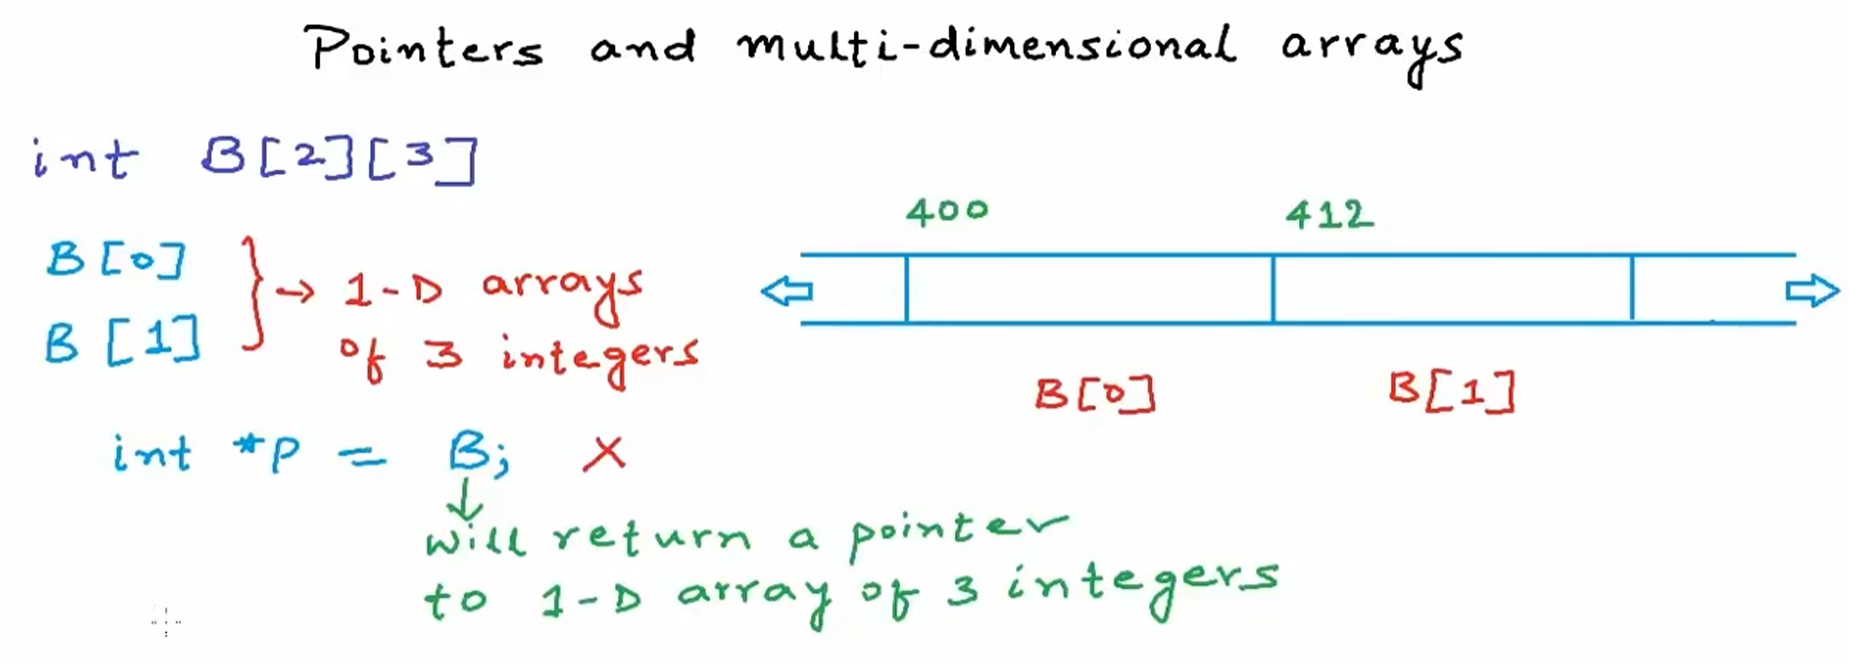 Pointers and multi-dimensional arrays
int B[2][3]
B[0]
B[1]
→ 1-D arrays
of 3 integers
400 412
B[0] B[1]
int *p = B; X
↓
will return a pointer
to 1-D array of 3 integers